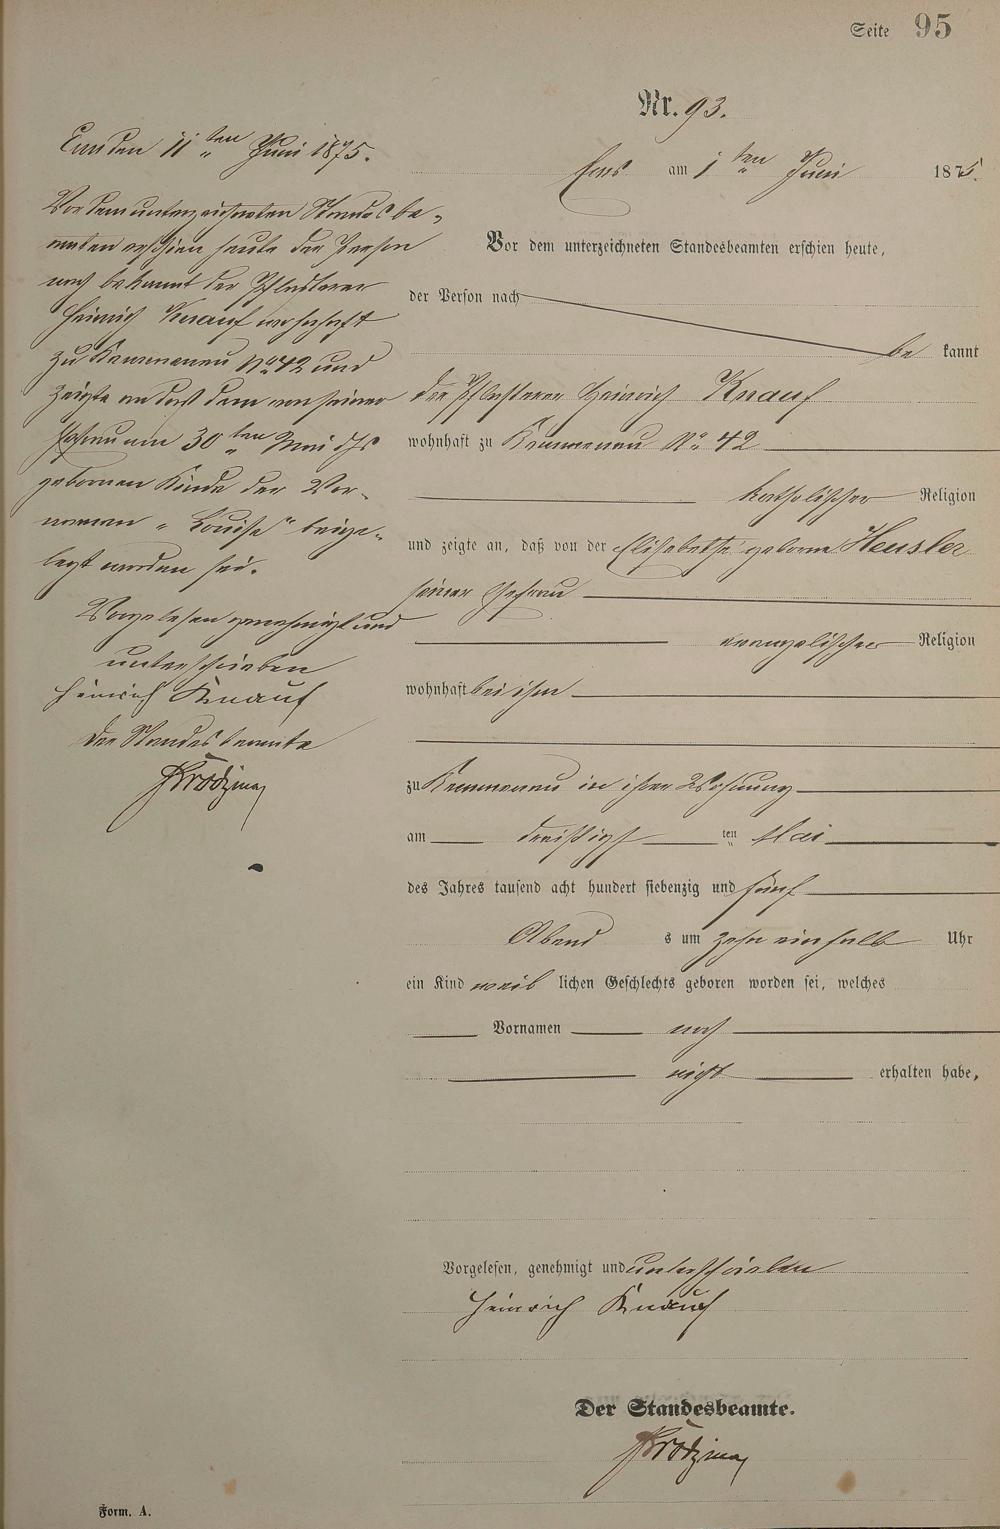 Seite 95
Nr. 93.
Ems am 1ten Juni 1875.
Vor dem unterzeichneten Standesbeamten erschien heute,
der Person nach
be kannt
der Pflasterer Heinrich Knauf
wohnhaft zu Kemmenau No 42
katholischer Religion
und zeigte an, daß von der Elisabethe geborne Heusler
seiner Ehefrau
evangelischer Religion
wohnhaft bei ihm
zu Kemmenau in ihrer Wohnung
am dreißigsten Mai
des Jahres tausend acht hundert siebenzig und fünf
Abend s um zehn einhalb Uhr
ein Kind weib lichen Geschlechts geboren worden sei, welches
Vornamen noch
nicht erhalten habe,
Vorgelesen, genehmigt und unterschrieben
Heinrich Knauf
Der Standesbeamte.
Ems den 11ten Juni 1875.
Vor dem unterzeichneten Standesbe-
amten erschien heute der Person
nach bekannt der Pflasterer
Heinrich Knauf wohnhaft
zu Kemmenau No 42 und
zeigte an daß dem von seiner
Ehefrau am 30ten Mai d Js
gebornen Kinde der Vor-
namen "Louise" beige-
legt worden sei.
Vorgelesen genehmigt und
unterschrieben
Heinrich Knauf
Der Standesbeamte
Form. A.